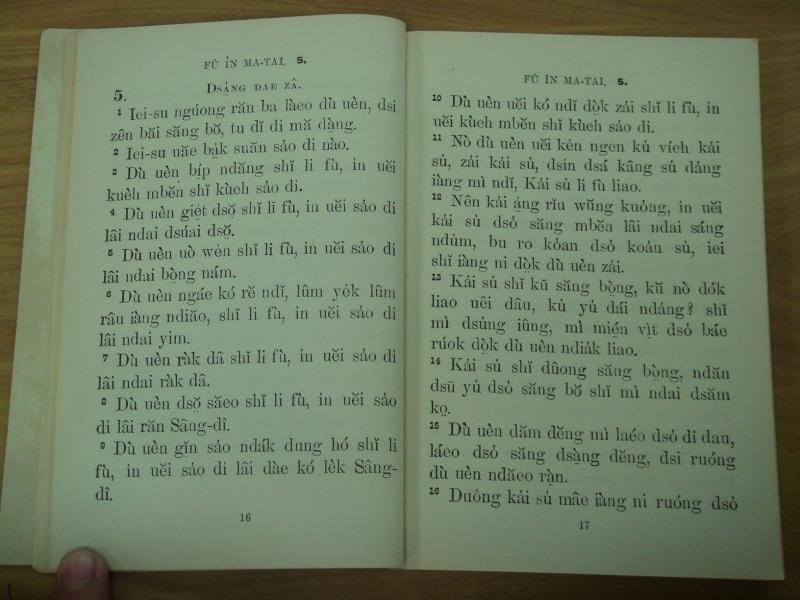 FŬ ÍN MA-TAI, 5.
5. DSẠ́NG DAE ZÂ.
1 Iei-su ngúong răn ba lảeo dù uèn, dsi
zên băi săng bŏ̤, tu dĭ di mă dạ̀ng.
2 Iei-su uăe bạ́k suăn sảo di nào.
3 Dù uèn bíp ndăng shĭ li fù, in uĕi
kuẻh mbĕn shĭ kùeh sảo di.
4 Dù uèn giẹ́t dsŏ̤ shĭ li fù, in uĕi sảo di
lâi ndai dsúai dsŏ̤.
5 Dù uèn uò wẻn shĭ li fù, in uĕi sảo di
lâi ndai bò̤ng nám.
6 Dù uèn ngáe kó rĕ ndĭ, lûm yẻk lûm
râu iàng ndiăo, shĭ li fù, in uĕi sảo di
lâi ndai yim.
7 Dù uèn rảk dâ shĭ li fù, in uĕi sảo di
lâi ndai rảk dâ.
8 Dù uèn dsŏ̤ săeo shĭ li fù, in uĕi sảo
di lâi răn Sâng-dî.
9 Dù uèn gĭn sảo ndák dung hó shĭ li
fù, in uĕi sảo di lâi dàe kó lẻk Sâng-
dî.
16
FŬ ÍN MA-TAI, 5.
10 Dù uèn uĕi kó ndĭ dò̤k zải shĭ li fù, in
uĕi kùeh mbĕn shĭ kùeh sảo di.
11 Nò dù uèn uĕi kên ngen kủ víeh kải
sủ, zải kải sủ, dsin dsá kâng sủ dảng
iàng mì ndĭ, Kải sủ li fù liao.
12 Nên kải ảng rĭu wŭng kuỏng, in uĕi
kải sủ dsỏ săng mbĕn lâi ndai sáng
ndủm, bu ro kỏan dsỏ koáu sủ, iei
shĭ iàng ni dò̤k dù uèn zải.
13 Kải sủ shĭ kŭ săng bò̤ng, kŭ nò dók
liao uêi dâu, kủ yủ dái ndảng? shĭ
mì dsủng iûng, mì miẹ́n vìt dsỏ báe
rúok dò̤k dù uèn ndiák liao.
14 Kải sủ shĭ dûong săng bò̤ng, ndăn
dsŭ yủ dsỏ săng bŏ shĭ mì ndai dsăm
kọ.
15 Dù uèn dăm dĕng mì laéo dsỏ dî dau,
láeo dsỏ săng dsàng dĕng, dsi ruóng
dù uèn ndăeo rạ̀n.
16 Duông kải sủ mâe iàng ni ruóng dsỏ
17